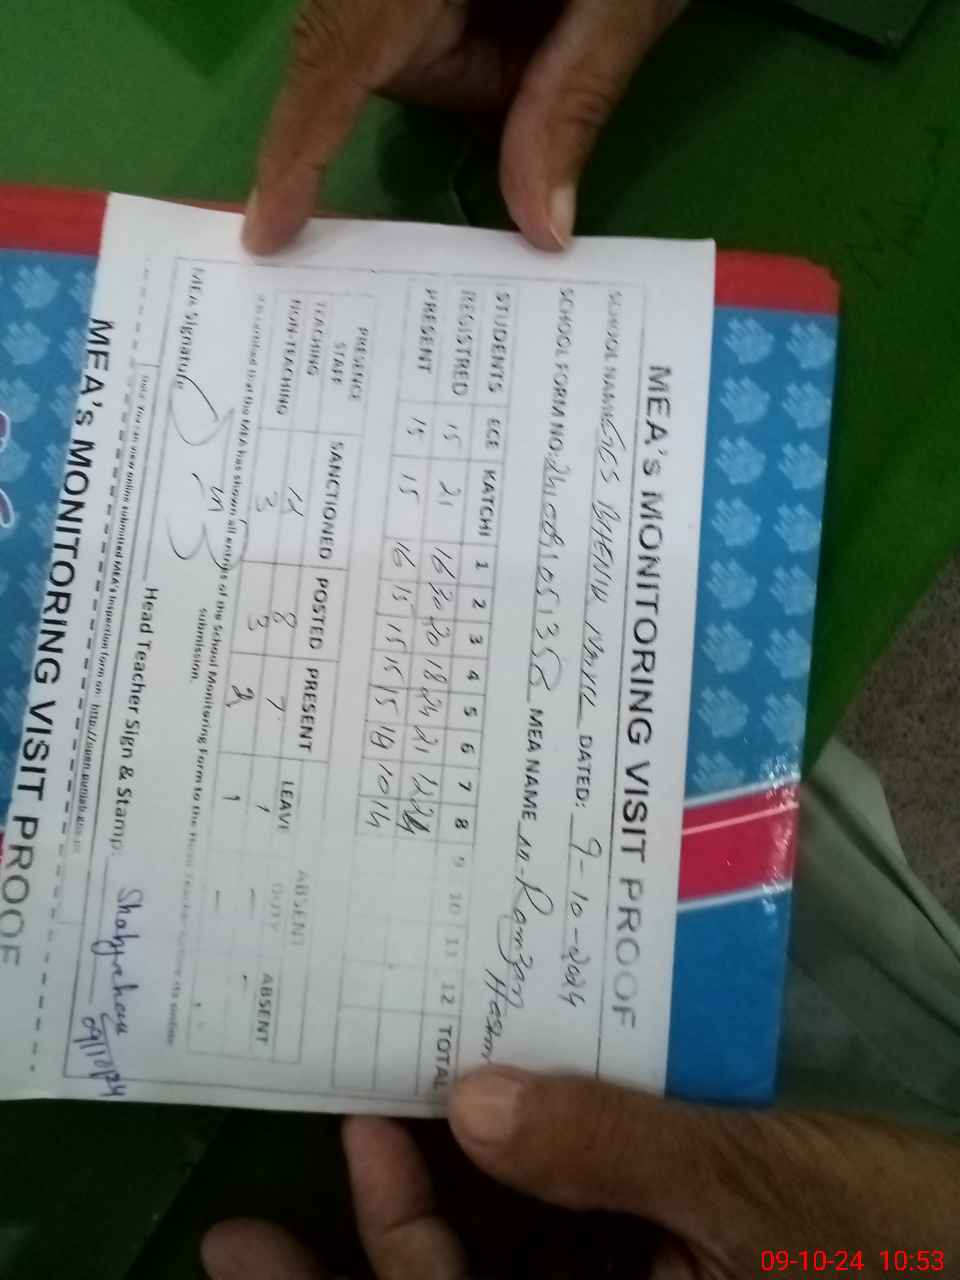 MEA's MONITORING VISIT PROOF
SCHOOL NAME: DATED: 9-10-2024
SCHOOL FORM NO: MEA NAME Ramzan
STUDENTS ECE KATCHI 1 2 3 4 5 6 7 8 9 10 11 12 TOTAL
REGISTRED 15 21 16 20 20 18 24 21
PRESENT 15 15 16 15 15 15 15 19 10 14
PRESENCE STAFF SANCTIONED POSTED PRESENT LEAVE ABSENT DUTY ABSENT
TEACHING 8 7 1 - -
NON-TEACHING 3 3 2 1 -
It is certified that the MEA has shown all entries of the School Monitoring Form to the Head Teacher before its online
submission.
MEA Signature Head Teacher Sign & Stamp: 09/10/24
Note: You can view online submitted MEA's inspection form on: http://open.punjab.gov.pk
MEA's MONITORING VISIT PROOF
09-10-24 10:53